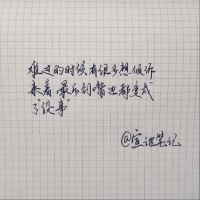 难过的时候有很多想倾诉
来着 最后到嘴边都变成
了"没事"
@宣谱笔记